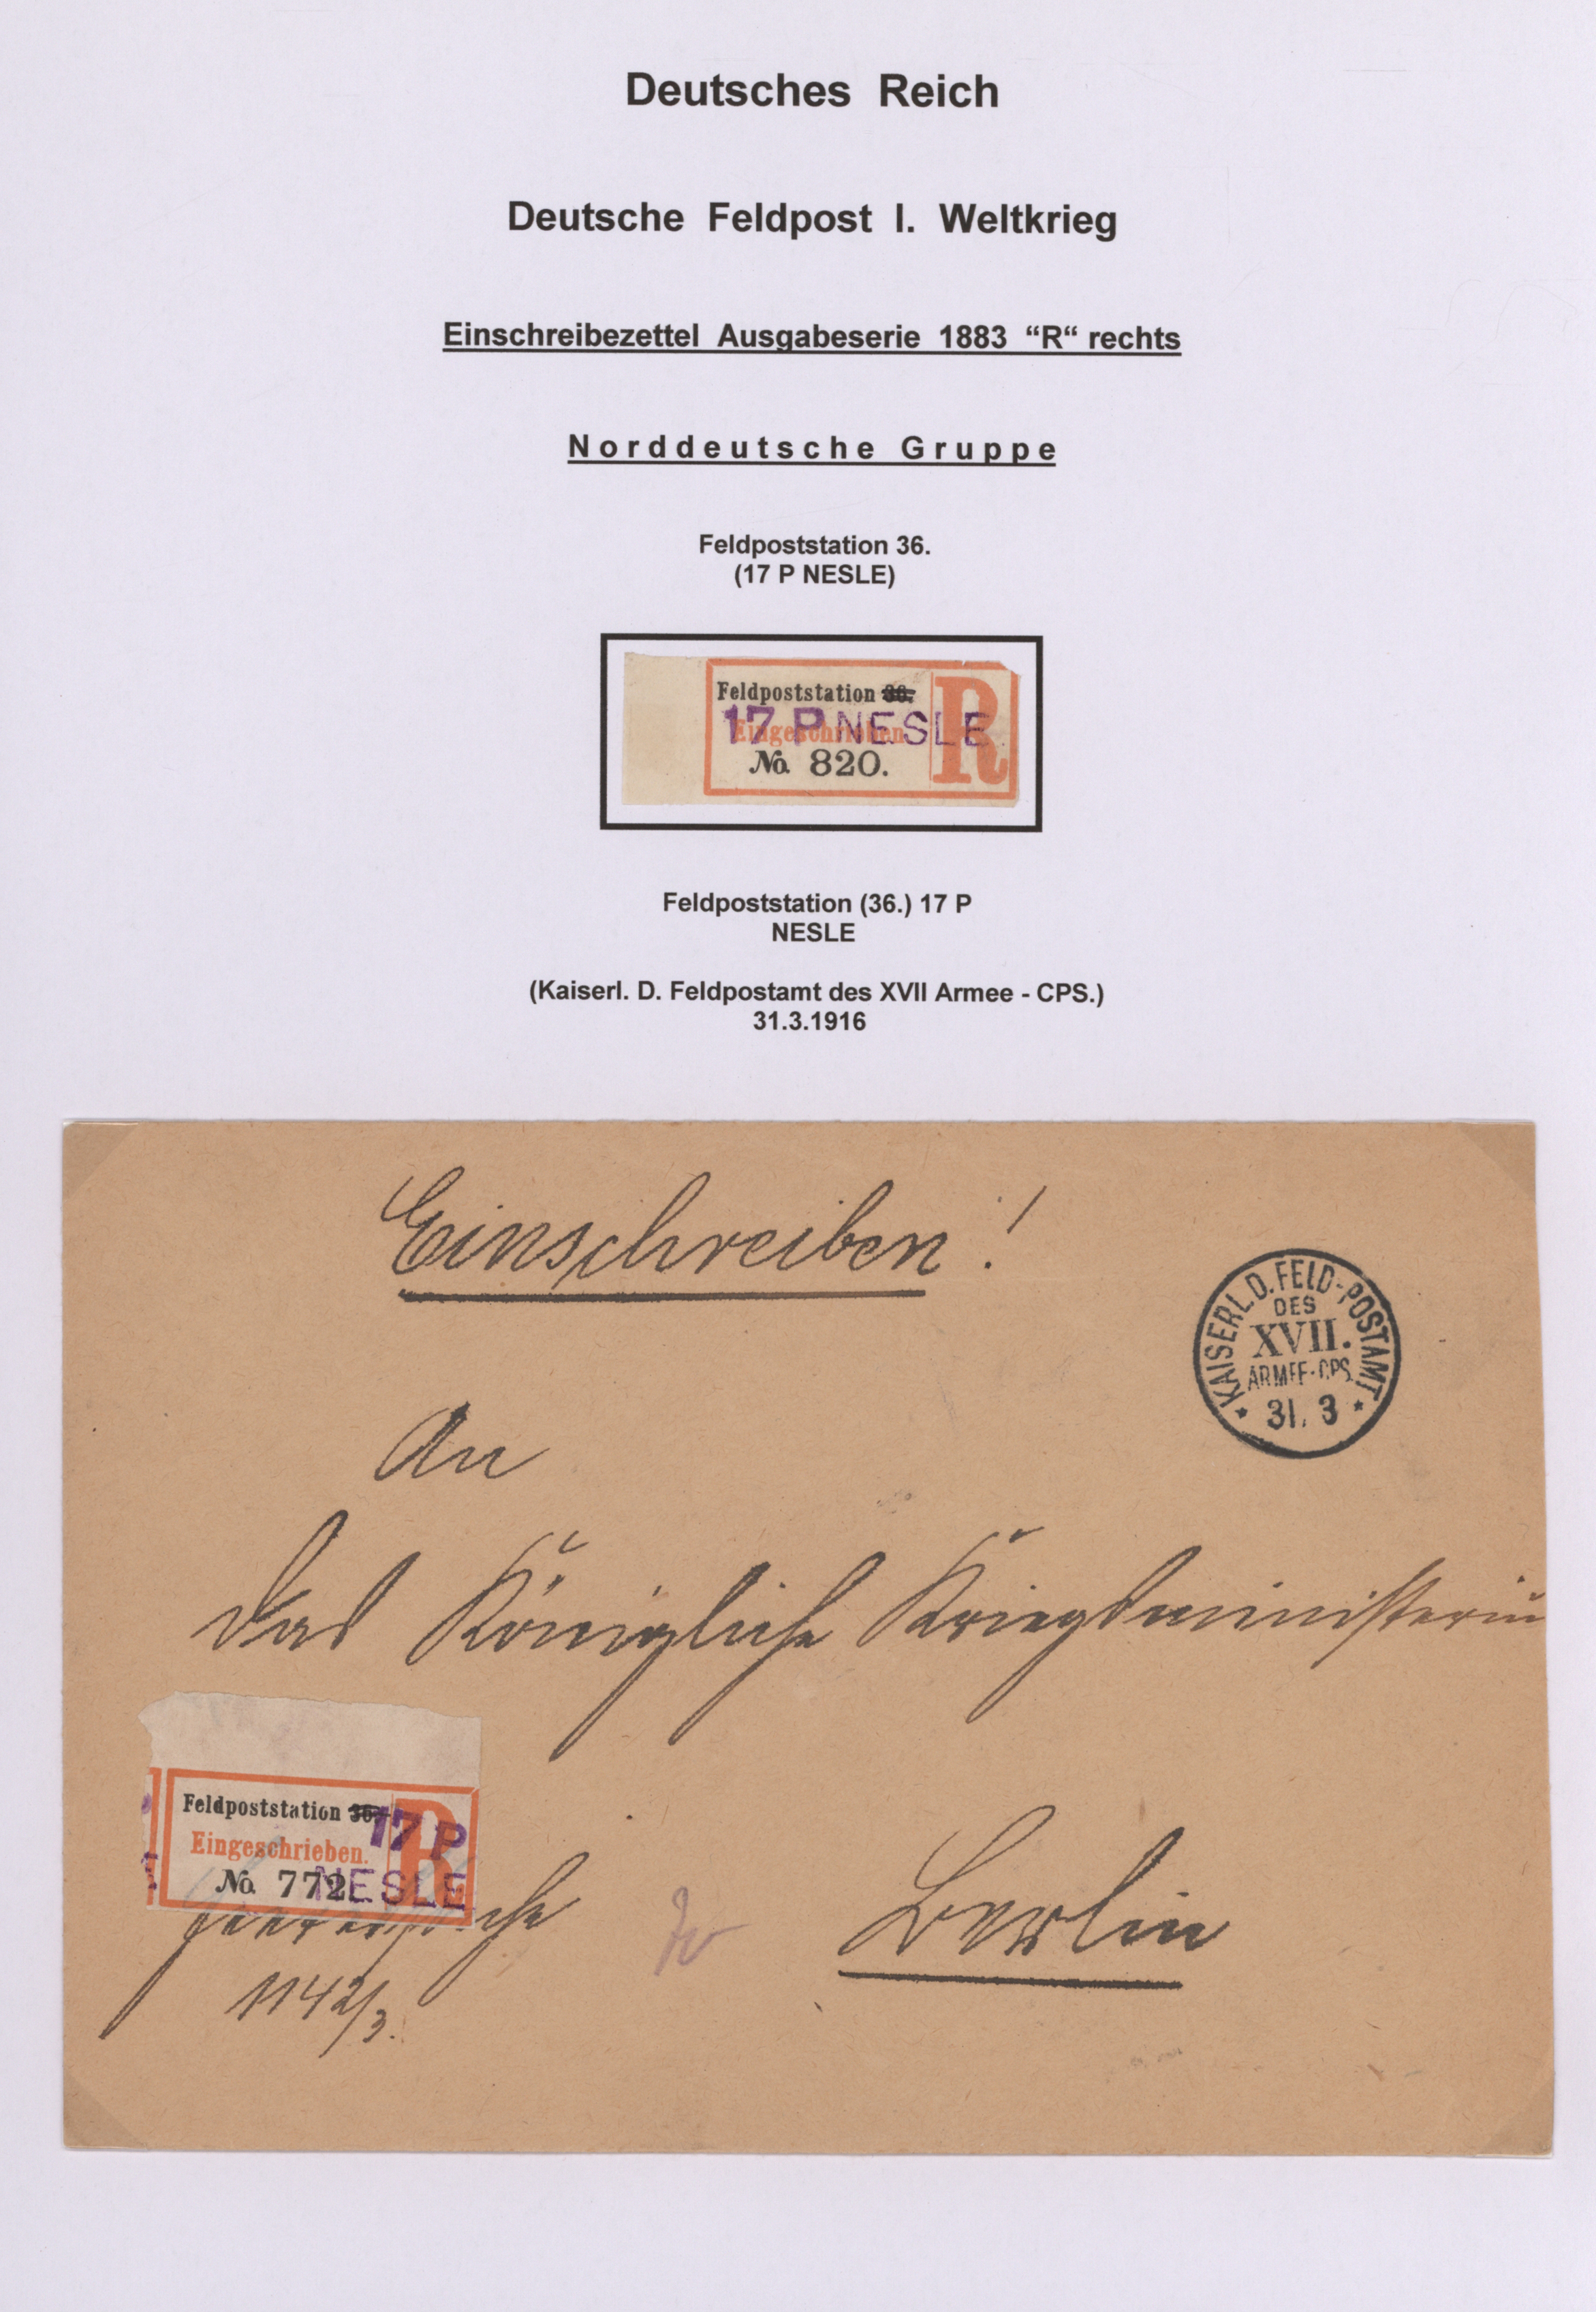 Deutsches Reich
Deutsche Feldpost I. Weltkrieg
Einschreibezettel Ausgabeserie 1883 “R“ rechts
Norddeutsche Gruppe
Feldpoststation 36.
(17 P NESLE)
Feldpoststation 36.
17 P NESLE
Eingeschrieben
R
No. 820.
Feldpoststation (36.) 17 P
NESLE
(Kaiserl. D. Feldpostamt des XVII Armee - CPS.)
31.3.1916
Einschreiben!
KAISERL. D. FELD-POSTAMT
DES
XVII.
ARMEE-CPS.
* 31. 3 *
An
das Königliche Kriegsministerium
Feldpoststation 36. 17 P
Eingeschrieben.
R
No. 772 NESLE
Berlin
1142/3.